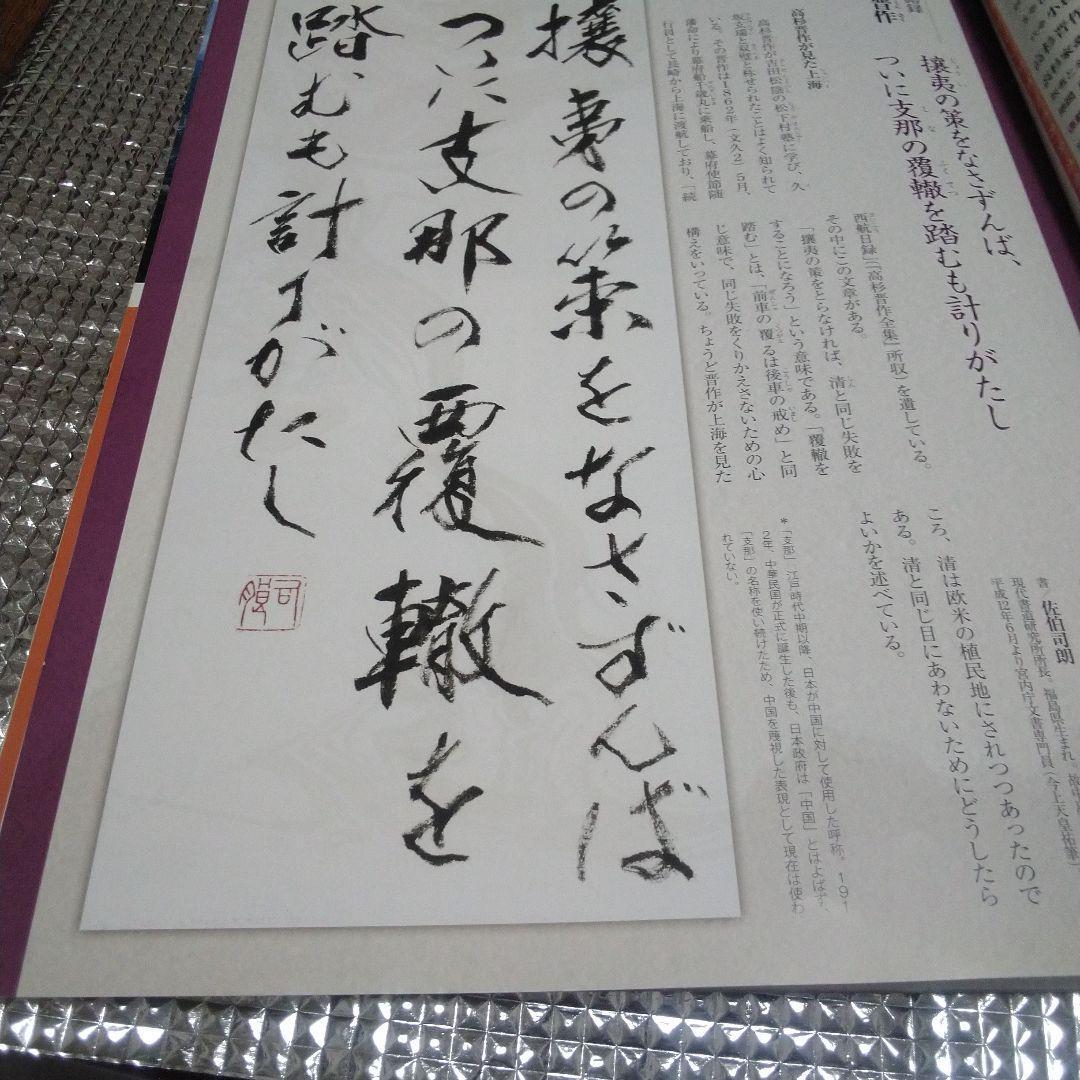 晋作
攘夷の策をなさずんば、
ついに支那の覆轍を踏むも計りがたし
高杉晋作が見た上海
高杉晋作が吉田松陰の松下村塾に学び、久
坂玄瑞と双璧と称せられたことはよく知られて
いる。その晋作は1862年（文久2）5月、
藩命により幕府船千歳丸に乗船し、幕府使節随
行員として長崎から上海に渡航しており、「続
西航日録」（『高杉晋作全集』所収）を遺している。
その中にこの文章がある。
「攘夷の策をとらなければ、清と同じ失敗を
することになろう」という意味である。「覆轍を
踏む」とは、「前車の覆るは後車の戒め」と同
じ意味で、同じ失敗をくりかえさないための心
構えをいっている。ちょうど晋作が上海を見た
ころ、清は欧米の植民地にされつつあったので
ある。清と同じ目にあわないためにどうしたら
よいかを述べている。
*「支那」 江戸時代中期以降、日本が中国に対して使用した呼称。191
2年、中華民国が正式に誕生した後も、日本政府は「中国」とはよばず、
「支那」の名称を使い続けたため、中国を蔑視した表現として現在は使わ
れていない。
書 佐伯司朗
現代書道研究所所長。福島県生まれ。
平成12年6月より宮内庁文書専門員（今上天皇祐筆）
攘夷の策をなさずんば
ついに支那の覆轍を
踏むも計りがたし